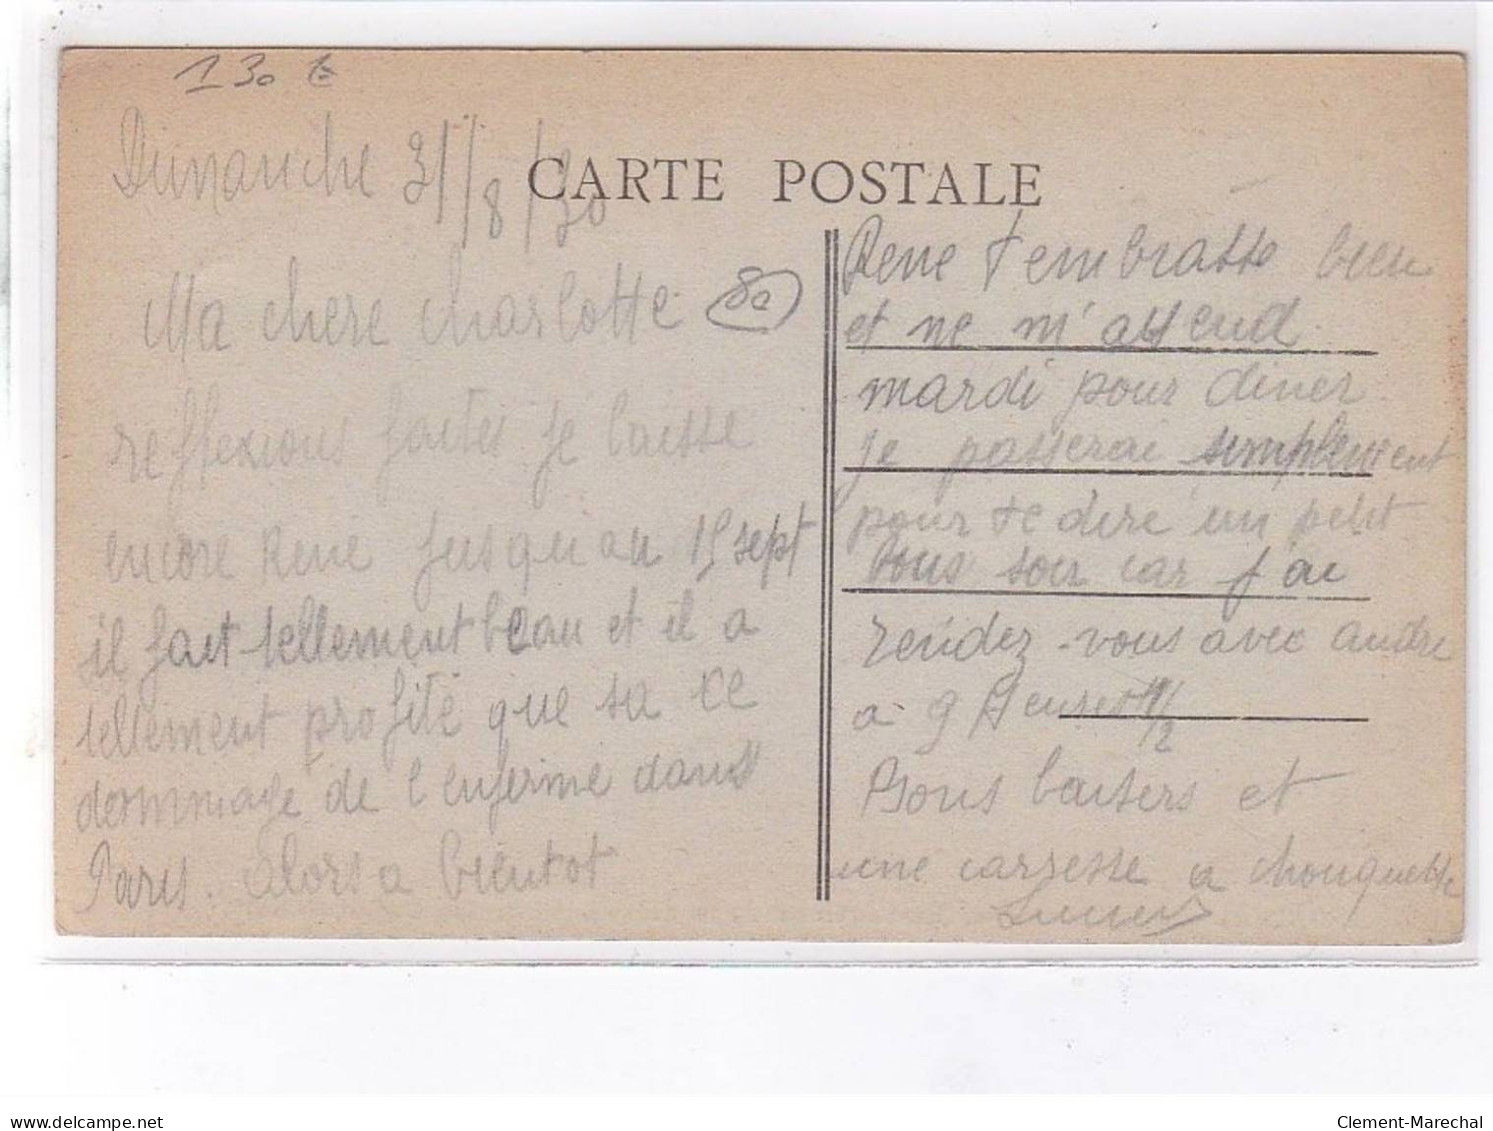 130 €
Dimanche 31/8/30
CARTE POSTALE
Ma chere Charlotte
80
reflexions faites je laisse
encore René jusqu'au 15 sept
il fait tellement beau et il a
tellement profité que sa ce
dommage de l enfermé dans
Paris. alors a bientot
Rene t'embrasse bien
et ne m'attend
mardi pour diner
je passerai simplement
pour te dire un petit
bons soir car j'ai
rendez-vous avec andre
a 9 Heures 1/2
Bons baisers et
une carresse a chouquette
delcampe.net
Clement-Marechal